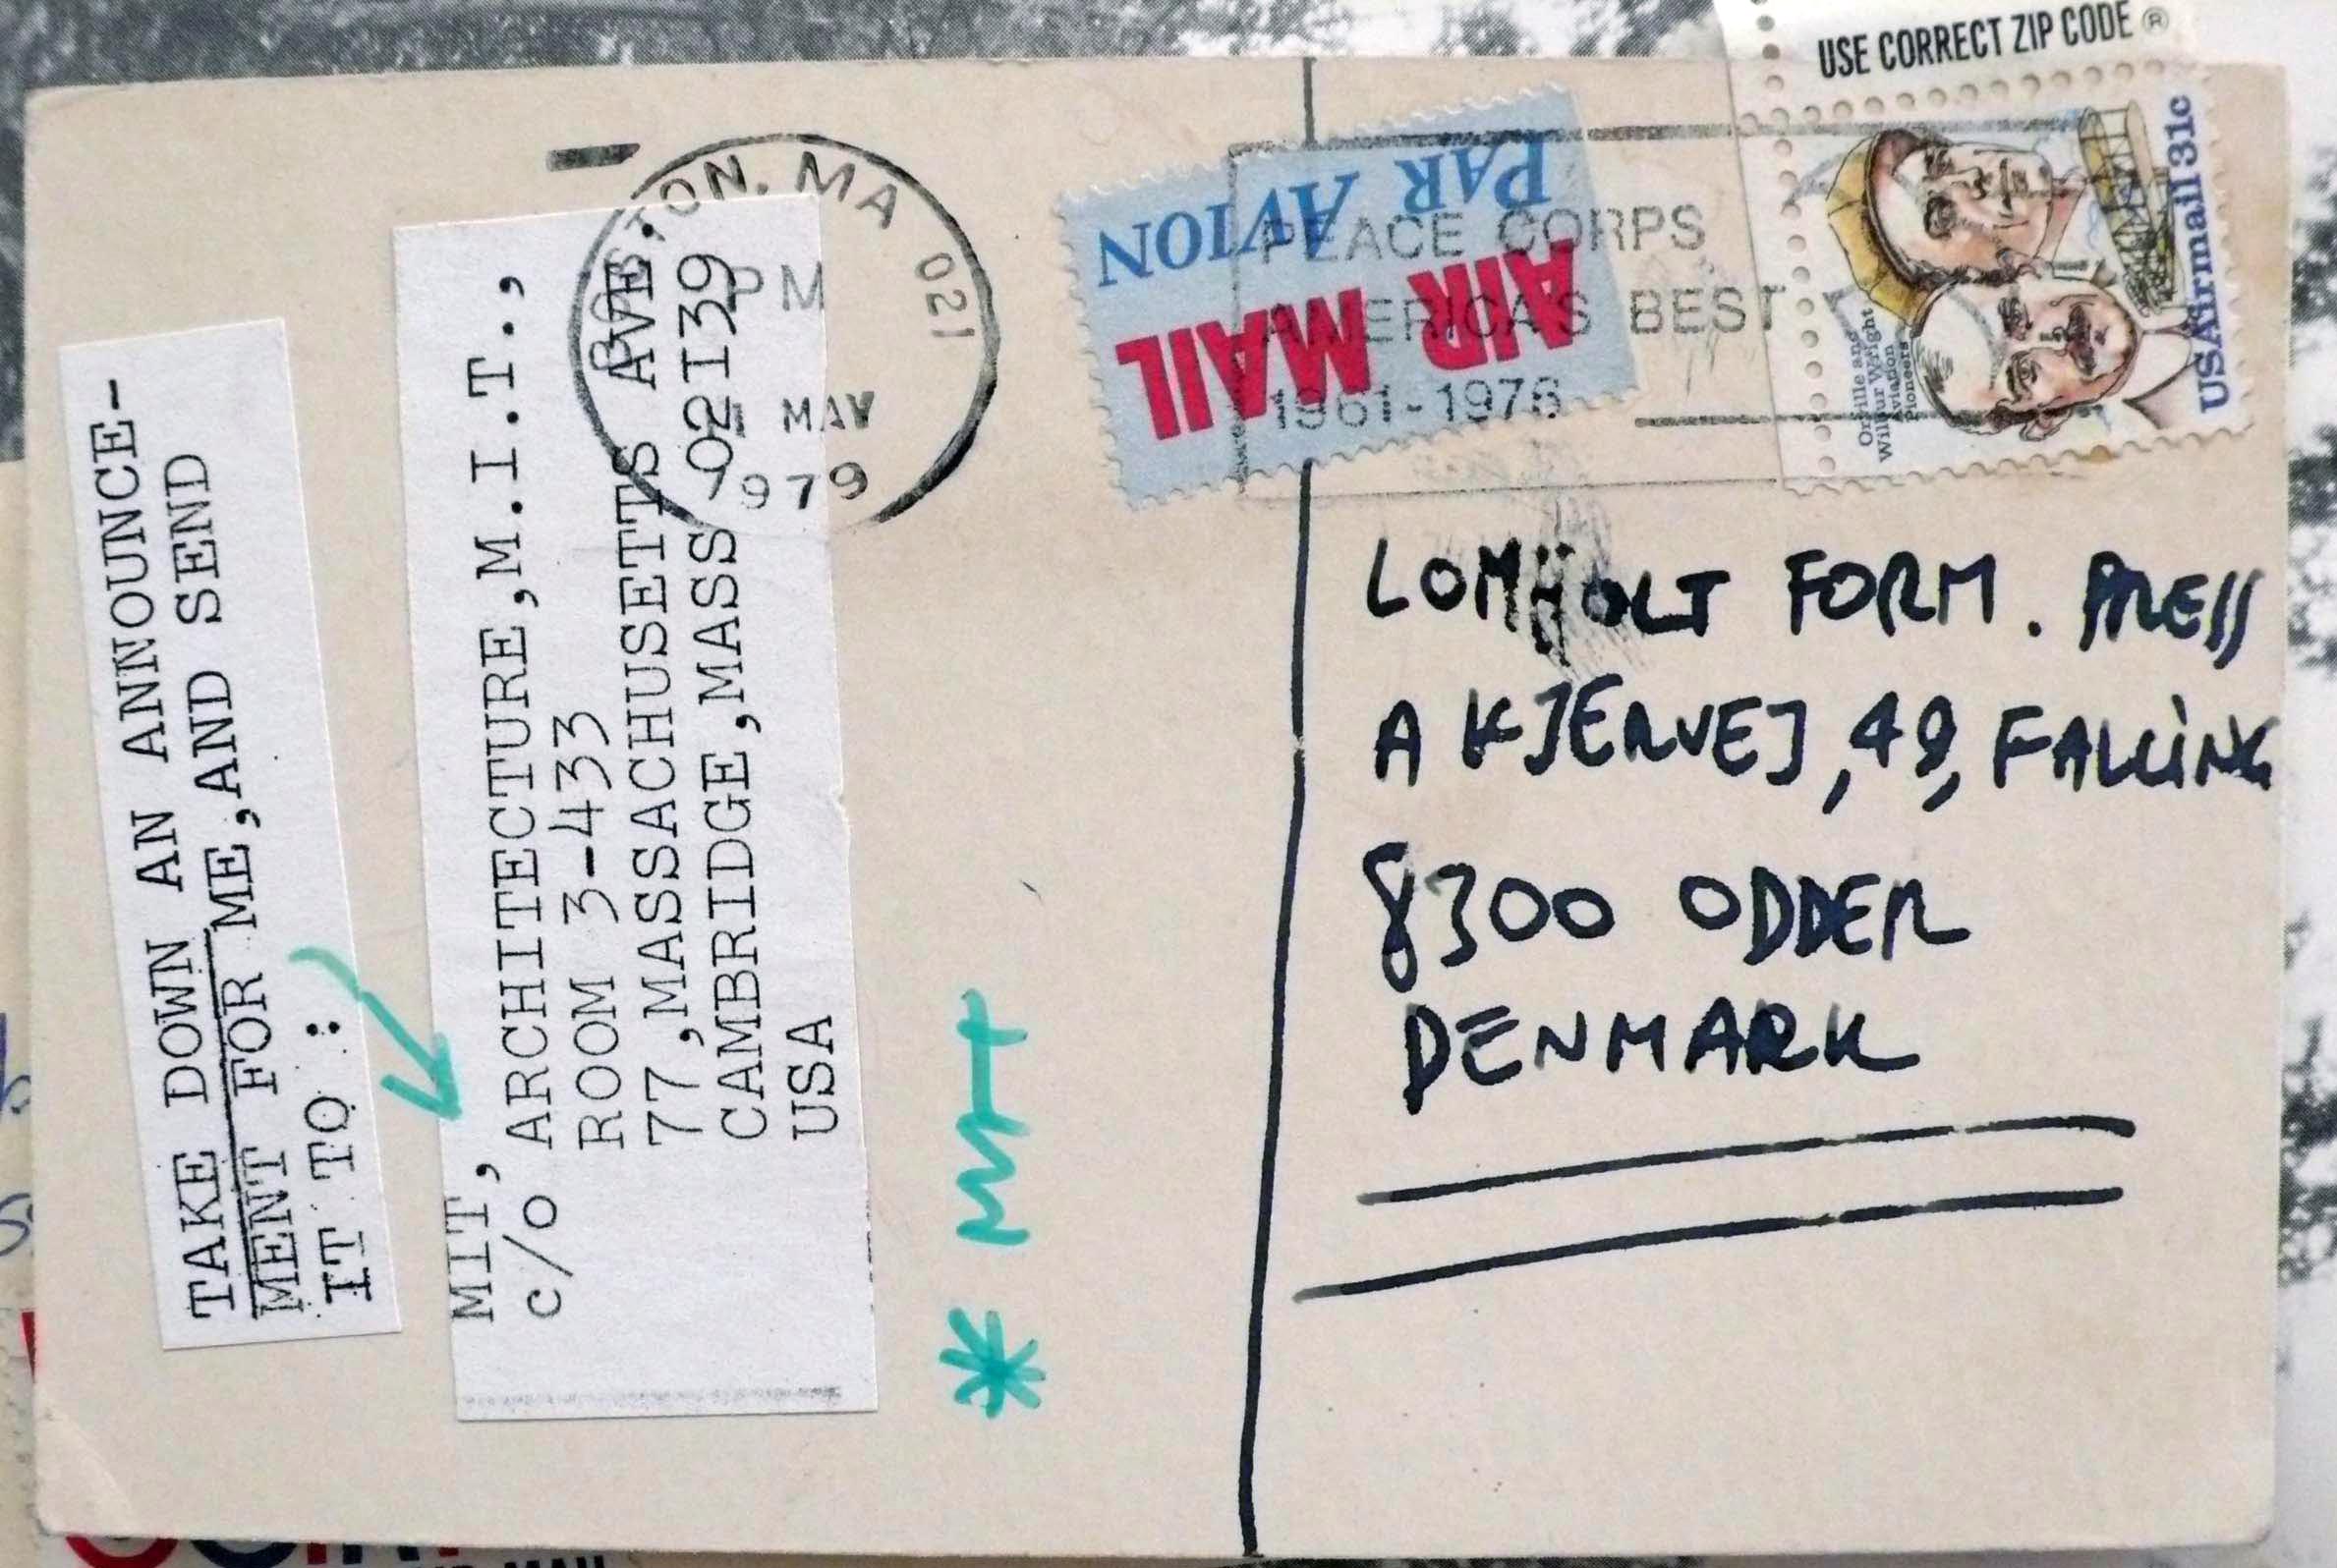 TAKE DOWN AN ANNOUNCE-
MENT FOR ME,AND SEND
IT TO :
MIT,
c/o ARCHITECTURE,M.I.T.,
ROOM 3-433
77,MASSACHUSETTS AVE.
CAMBRIDGE,MASS 02I39
USA
BOSTON. MA 021
PM
MAY
1979
PAR AVION
AIR MAIL
PEACE CORPS
AMERICA'S BEST
1961-1976
USE CORRECT ZIP CODE ®
Orville and
Wilbur Wright
Aviation
Pioneers
USAirmail 31c
LOMHOLT FORM. PRESS
AKJERVEJ, 49, FALLING
8300 ODDER
DENMARK